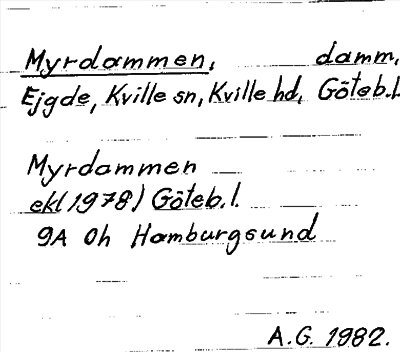 Myrdammen, damm,
Ejgde, Kville sn, Kville hd, Göteb.l.
Myrdammen
ekl(1978) Göteb.l.
9A 0h Hamburgsund
A.G. 1982.